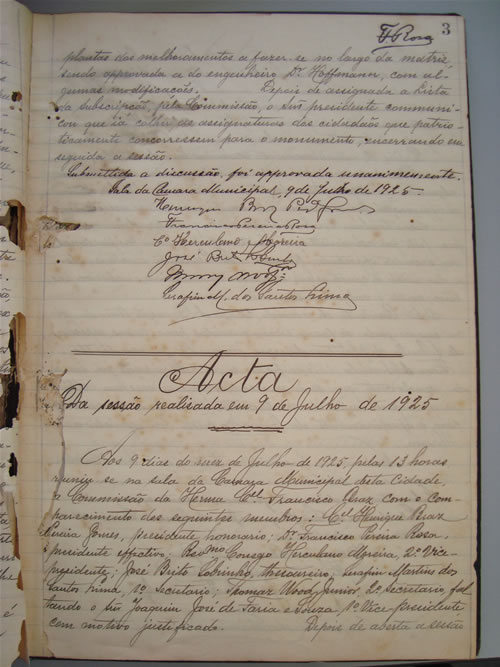 FRosa
3
plantas dos melhoramentos a fazer-se no largo da matriz,
sendo approvada a do engenheiro Dr. Hoffmann, com al-
gumas modificações. Depois de assignada a lista
da subscripção, pela Commissão, o Snr presidente communi-
cou que iria colher as assignaturas dos cidadãos que patrio-
ticamente concorressem para o monumento, encerrando em
seguida a sessão.
Submettida a discussão, foi approvada unanimemente.
Sala da Camara Municipal, 9 de Julho de 1925
Henrique Braz
Francisco Pereira Rosa
Co Herculano Moreira
José Brito Sobrinho
Serafim M. dos Santos Lima
Acta
Da sessão realisada em 9 de Julho de 1925
Aos 9 dias do mez de Julho de 1925, pelas 13 horas
reuniu-se na sala da Camara Municipal desta Cidade,
a Commissão da Herma Cel. Francisco Braz com o com-
parecimento dos seguintes membros: Cel. Henrique Braz
Pereira Gomes, presidente honorario; Dr. Francisco Pereira Rosa,
presidente effectivo; Revmo Conego Herculano Moreira, 2º Vice-
presidente; José Brito Sobrinho, thesoureiro; Serafim Martins dos
Santos Lima, 1º Secretario; Thomaz Wood Junior, 2º Secretario, fal-
tando o snr Joaquim José de Faria e Souza, 1º Vice-presidente
com motivo justificado. Depois de aberta a sessão